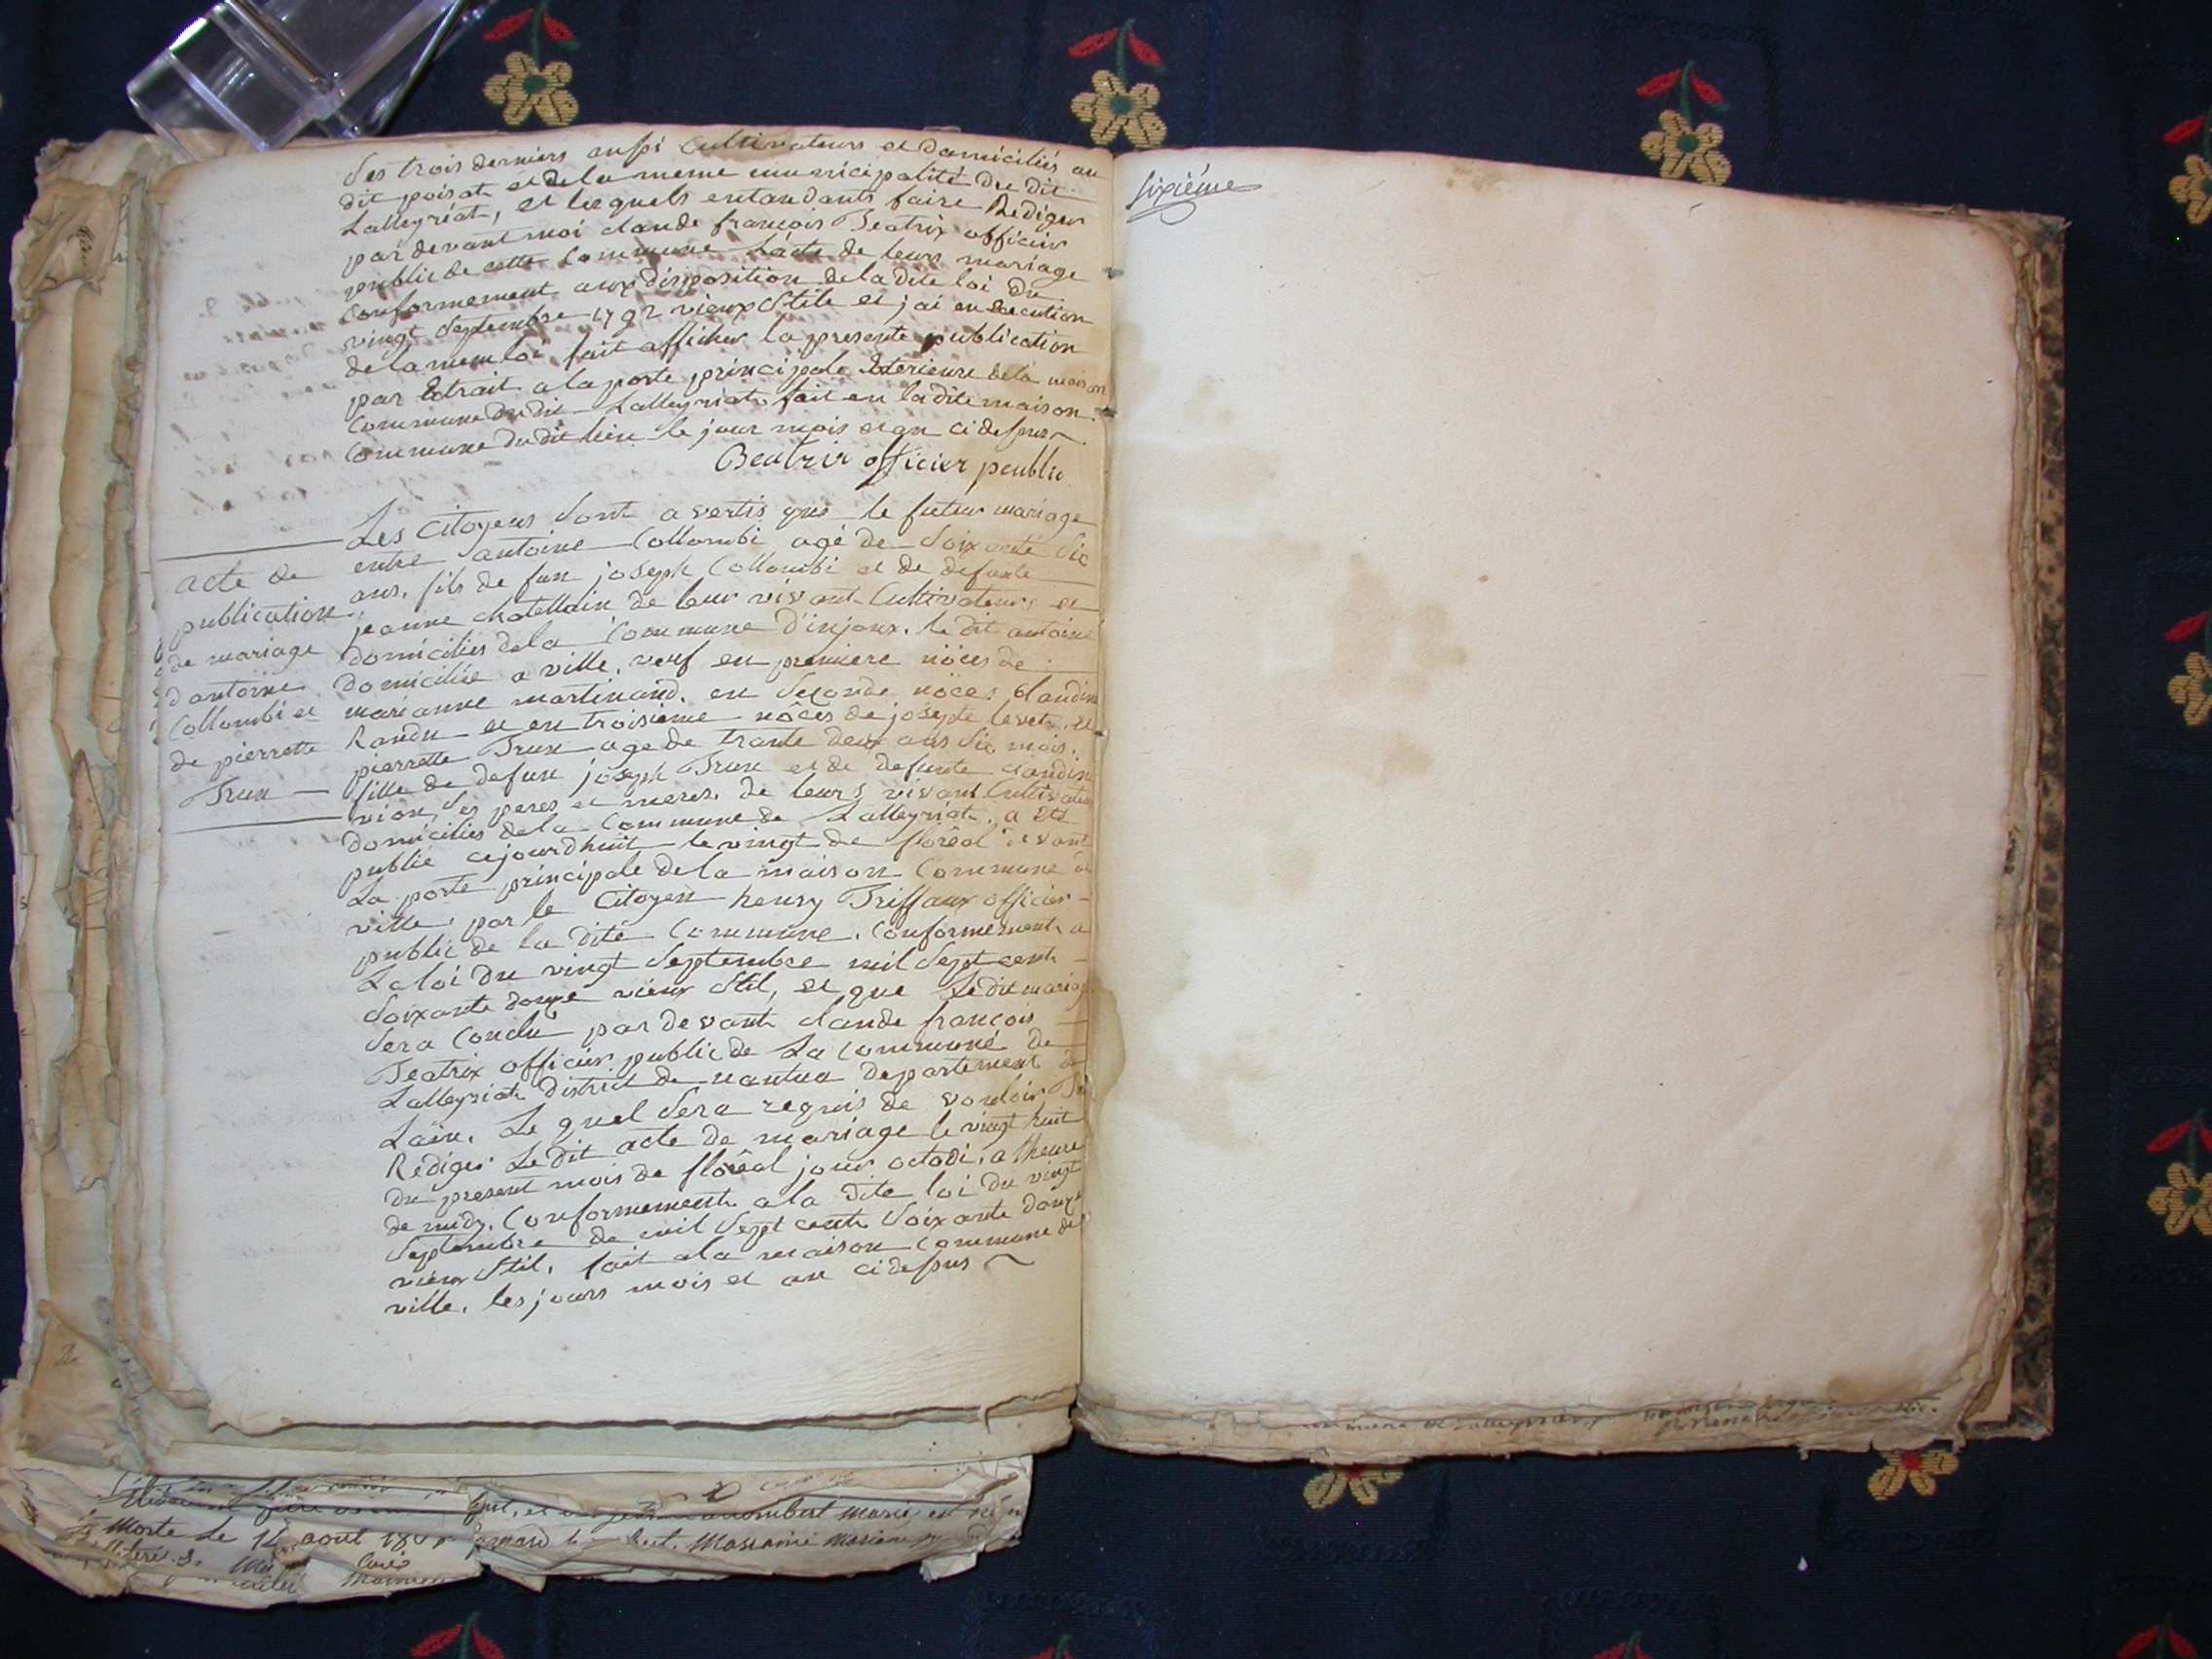 des trois derniers aussi Cultivateurs et domiciliés au
dit poisat et de la meme municipalité du dit
Lalleyriat, et lesquels entandants faire Rediger
par devant moi claude françois Beatrix officier
public de cette Commune L'acte de leurs mariage
Conformement aux disposition de la dite loi du
vingt Septembre 1792 vieux Stile et j'ai en Execution
de la meme loi fait afficher la presente publication
par Extrait a la porte principale Exterieure de la maison
Commune du dit Lalleyriat fait en la dite maison
Commune du dit lieu le jour mois et an ci dessus
Beatrix officier peublic
Les Citoyens Sont avertis que le futur mariage
entre antoine Collombi agé de Soixante Six
ans, fils de fun joseph Collombi et de defunte
jeanne chatellain de leur vivant Cultivateurs et
domiciliés de la Commune d'injoux. le dit antoine
domicilié a ville, veuf en premiere nôces de
marianne martinand, en Seconde nôces Claudine
Randu et en troisième nôces de josepte levet, et
pierrette Trun age de trante deux ans Six mois,
fille de defun joseph Trun et de defunte claudine
vion, Ses peres et meres, de leurs vivant Cultivateurs
domiciliés de la Commune de Lalleyriat, a été
publié cejourdhuit le vingt de floréal devant
La porte principale de la maison Commune de
ville, par le Citoyen henry Triffaux officier
public de la dite Commune, Conformement a
La loi du vingt Septembre mil Sept cent
Soixante douze vieux Stil, et que Le dit mariage
Sera Conclu par devant claude françois
Beatrix officier public de La Commune de
Lalleyriat District de nantua departement de
Lain, Le quel Sera requis de vouloir
Rediger Le dit acte de mariage le vingt huit
du present mois de floréal jour octodi, a lheure
de midy, Conformement a la dite loi du vingt
Septembre de mil Sept cent Soixante douze
vieux Stil, fait a la maison Commune de
ville, les jours mois et an ci dessus
acte de
publication
de mariage
d'antoine
Collombi et
de pierrette
Trun
Sixiéme
Morte le 14 aout